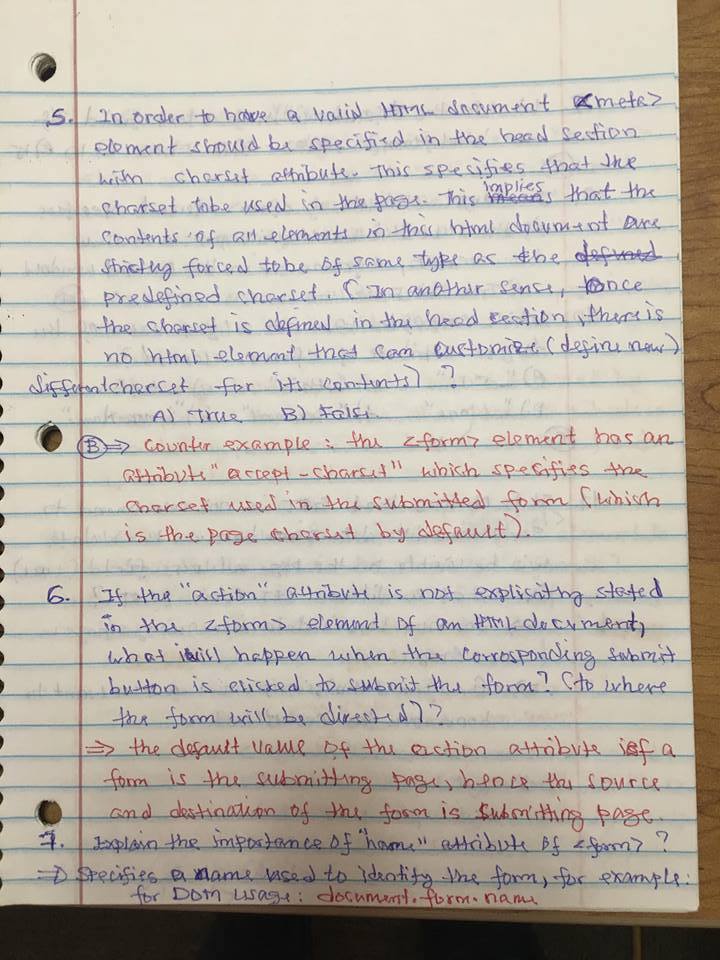 5. In order to have a valid HTML document <meta>
element should be specified in the head section
with charset attribute. This specifies that the
charset to be used in the page. This implies that the
contents of all elements in this html document are
strictly forced to be of same type as the defined
predefined charset. (In another sense, once
the charset is defined in the head section, there is
no html element that can customize (define new)
different charset for its contents) ?
A) True B) False
(B) => counter example: the <form> element has an
attribute "accept-charset" which specifies the
charset used in the submitted form (which
is the page charset by default).
6. If the "action" attribute is not explicitly stated
in the <form> element of an HTML document,
what will happen when the corrosponding submit
button is clicked to submit the form? (to where
the form will be directed)?
=> the default value of the action attribute of a
form is the submitting page, hence the source
and destination of the form is submitting page.
7. Explain the importance of "name" attribute of <form> ?
=> Specifies a name used to identify the form, for example:
for DOM usage: document.form.name